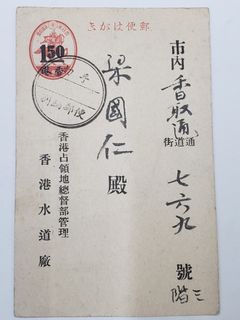 郵便はがき
1.50
香港
別納郵便
市内 香取通
街道通
七六九
號
三階
梁國仁 殿
香港占領地總督部管理
香港水道廠